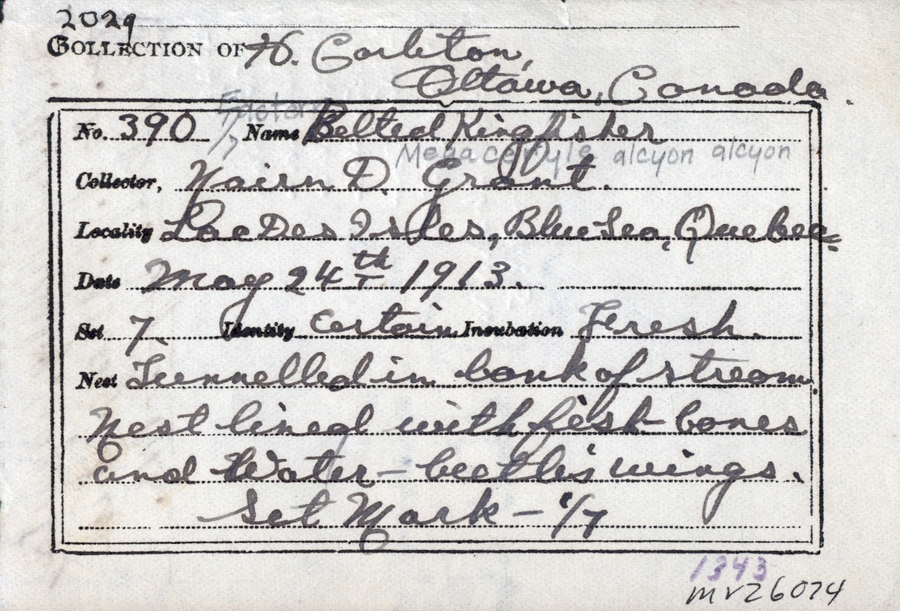 2029
COLLECTION OF H. Carleton,
Ottawa, Canada.
No. 390 1/7 Name Belted Kingfisher
Megaceryle alcyon alcyon
Collector, Nairn D. Grant.
Locality Lac Des Isles, Blue Sea, Quebec
Date May 24th 1913.
Set 7. Identity Certain Incubation Fresh.
Nest Tunnelled in bank of stream.
Nest lined with fish bones
and Water-beetle's wings.
Set Mark - 1/7
1343
mv26074